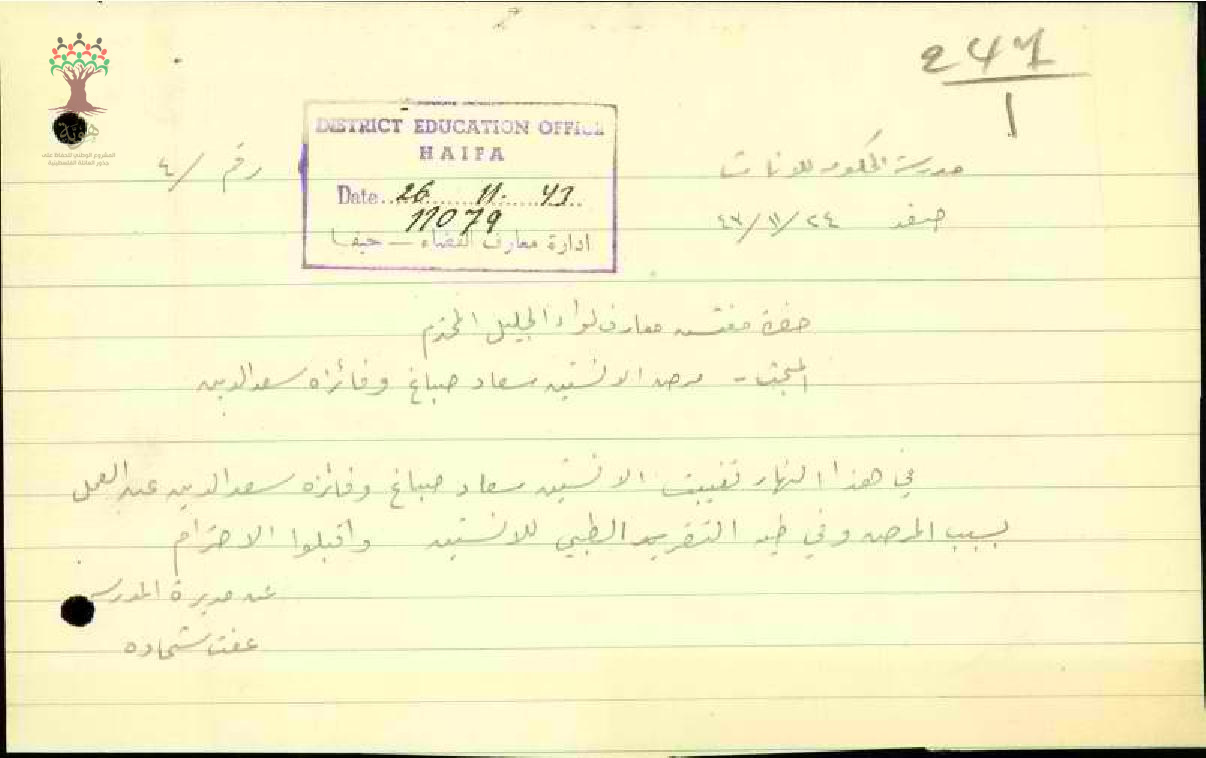 247
1
هوية
المشروع الوطني للحفاظ على
جذور العائلة الفلسطينية
DISTRICT EDUCATION OFFICE
HAIFA
Date.. 26. 11. 43
11079
ادارة معارف القضاء — حيفا
رقم / ٤
مدرسة الحكومة للبنات
صفد ٢٤/١١/٤٣
حضرة مفتش معارف لواء الجليل المحترم
المبحث - مرض الانستين سعاد صباغ وفائزه سعد الدين
في هذا النهار تغيبت الانستين سعاد صباغ وفائزه سعد الدين عن العمل
بسبب المرض وفي طيه التقرير الطبي للانستين واقبلوا الاحترام
عن مديرة المدرسة
عفت شحاده